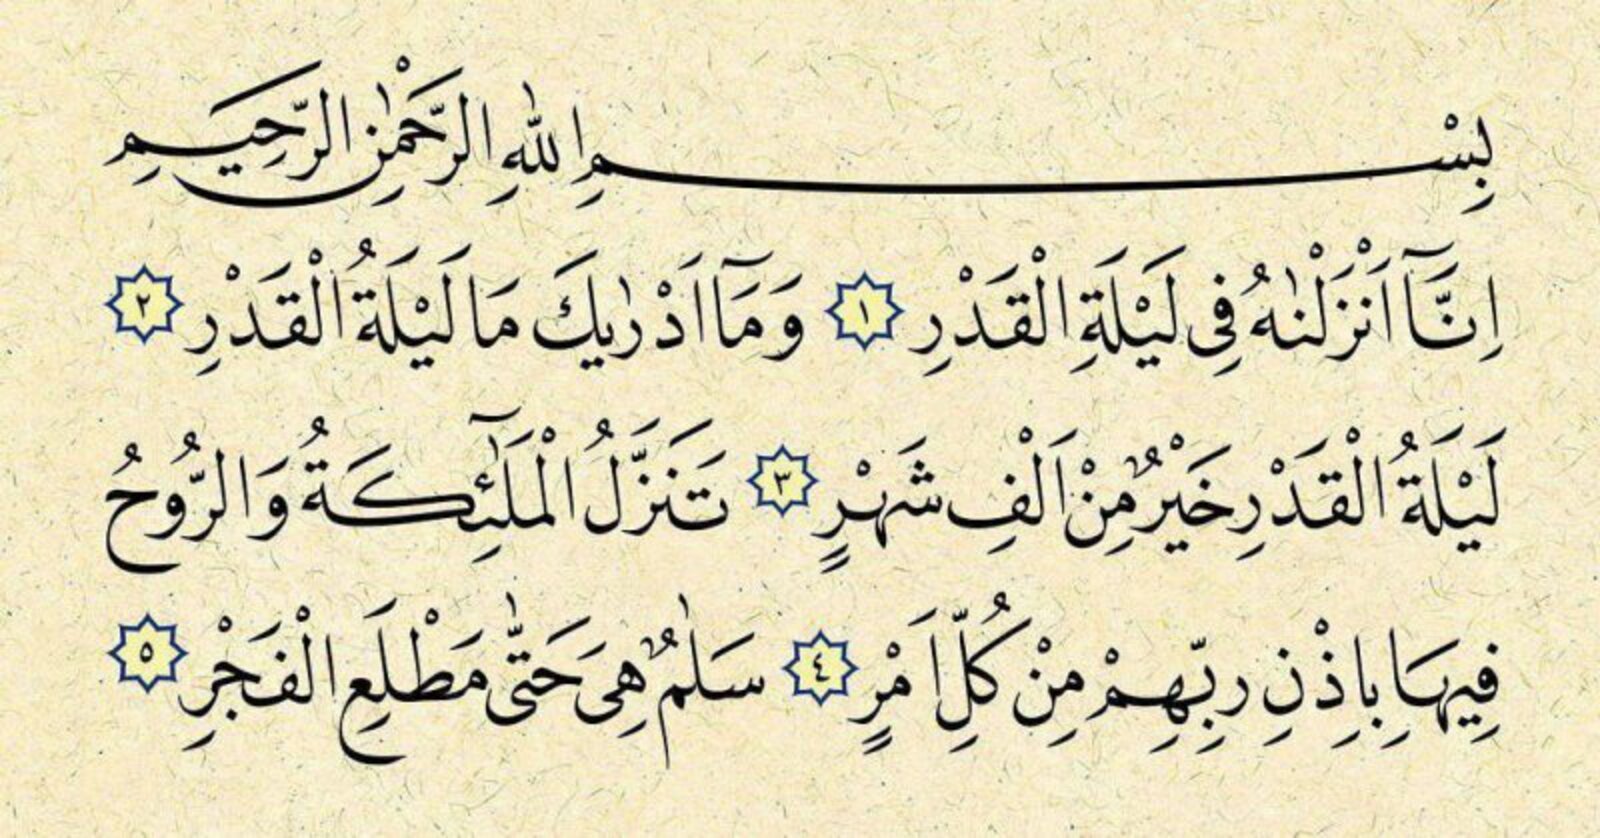 بِسْمِ اللهِ الرَّحْمٰنِ الرَّحِيمِ
اِنَّٓا اَنْزَلْنٰهُ فِى لَيْلَةِ الْقَدْرِ ١ وَمَٓا اَدْرٰيكَ مَا لَيْلَةُ الْقَدْرِ ٢
لَيْلَةُ الْقَدْرِ خَيْرٌ مِنْ اَلْفِ شَهْرٍ ٣ تَنَزَّلُ الْمَلٰٓئِكَةُ وَالرُّوحُ
فِيهَا بِاِذْنِ رِبِّهِمْ مِنْ كُلِّ اَمْرٍ ٤ سَلٰمٌ هِىَ حَتّٰى مَطْلَعِ الْفَجْرِ ٥